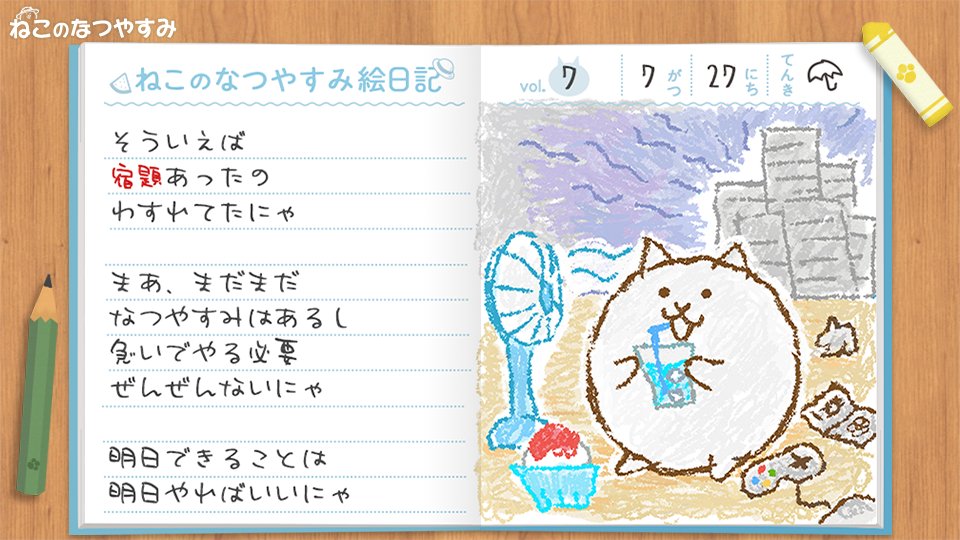 ねこのなつやすみ
ねこのなつやすみ絵日記
vol. 7
7 がつ 27 にち てんき
そういえば
宿題あったの
わすれてたにゃ
まあ、まだまだ
なつやすみはあるし
急いでやる必要
ぜんぜんないにゃ
明日できることは
明日やればいいにゃ